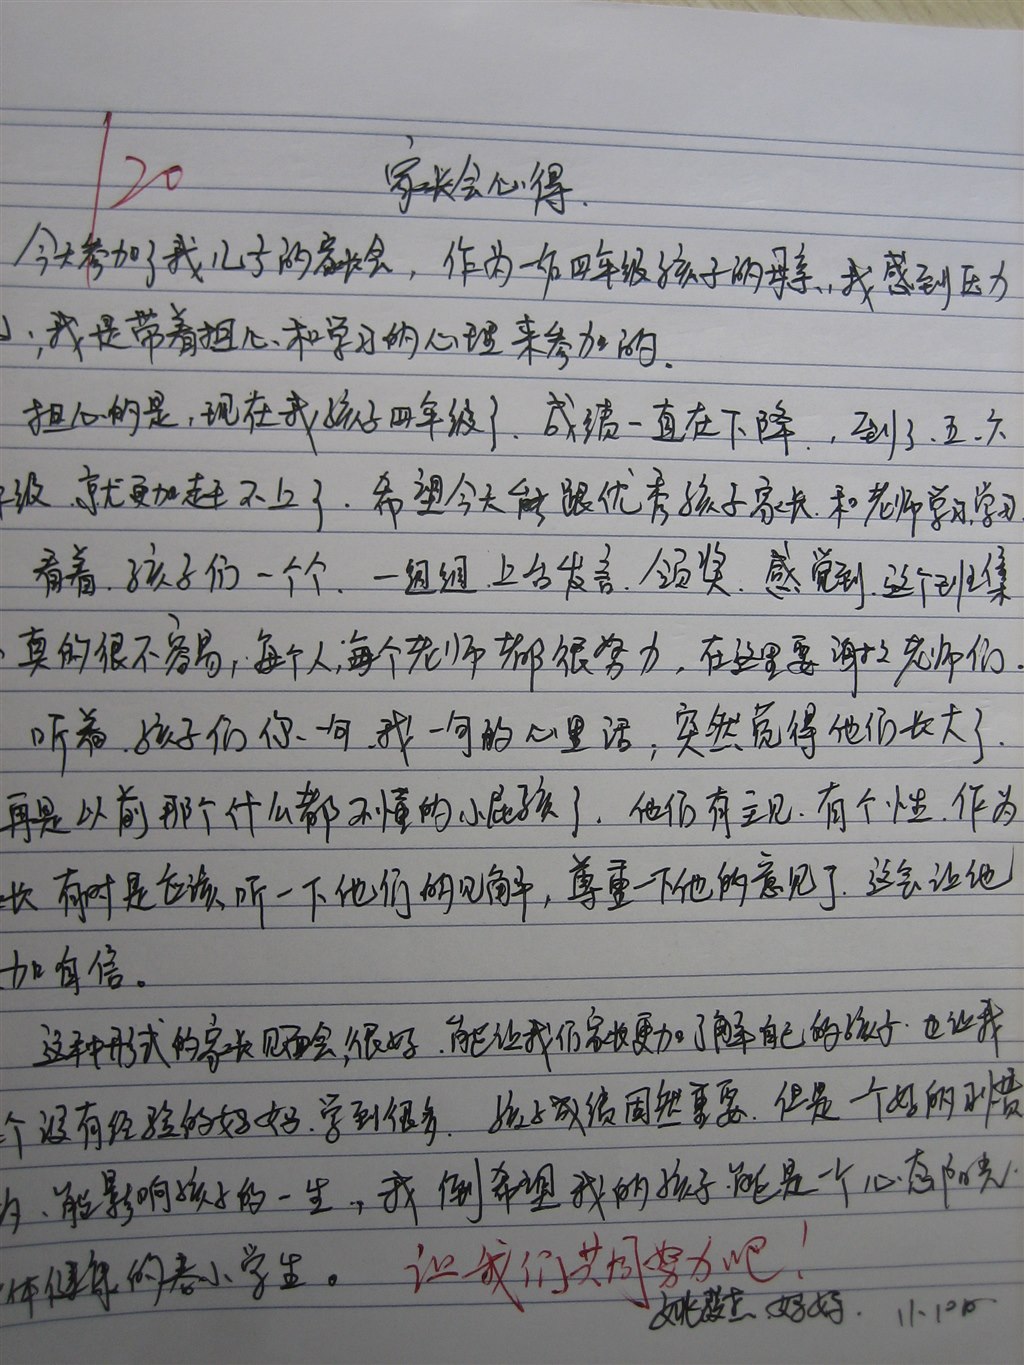 120
家长会心得.
今天参加了我儿子的家长会，作为一名四年级孩子的母亲，我感到压力
，我是带着担心和学习的心理来参加的.
担心的是，现在我孩子四年级了.成绩一直在下降.，到了.五.六
级.就更加赶不上了.希望今天能跟优秀孩子家长.和老师学习学习
看着.孩子们一个个.一组组.上台发言.领奖.感觉到.这个班集
真的很不容易，每个人，每个老师都很努力，在这里要谢谢老师们.
听着.孩子们你一句.我一句的心里话，突然觉得他们长大了.
再是以前那个什么都不懂的小屁孩了.他们有主见.有个性.作为
长有时是应该听一下他们的见解，尊重一下他的意见了.这会让他
加自信。
这种形式的家长见面会，很好.能让我们家长更加了解自己的孩子.也让我
个没有经验的妈妈.学到很多.孩子成绩固然重要.但是一个好的习惯
能影响孩子的一生.，我倒希望我的孩子能是一个心态阳光.
体健康的小学生。让我们共同努力吧！
妈妈. 11.10